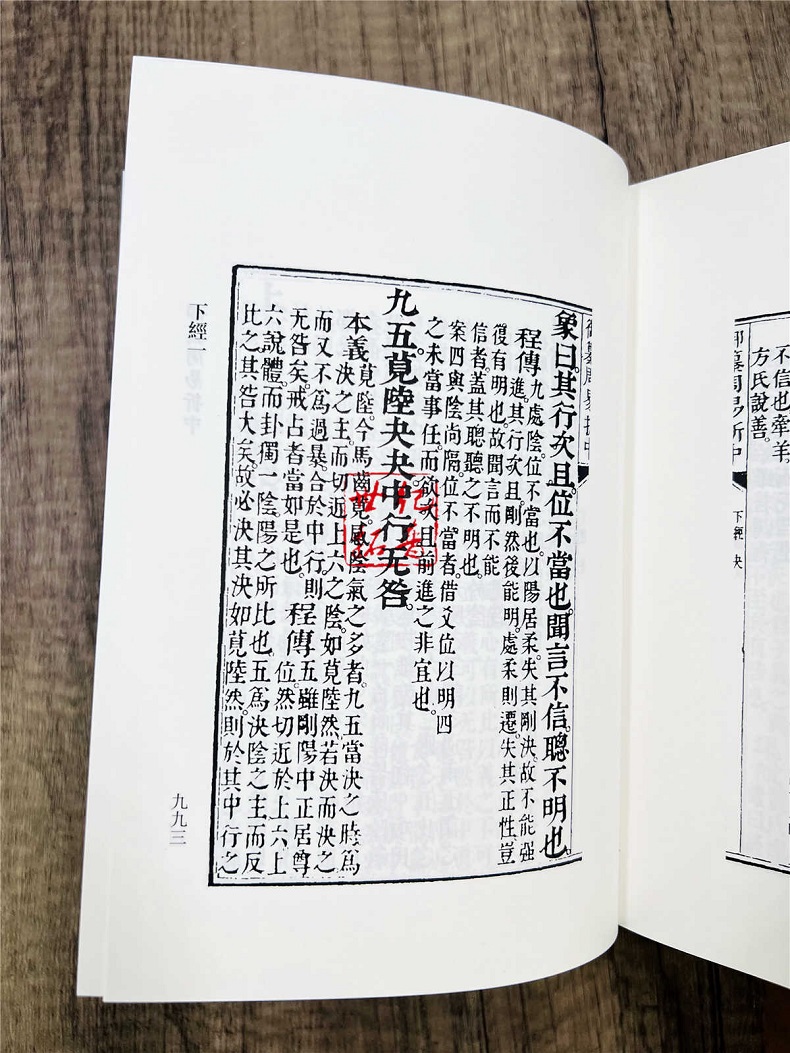 不信也牽羊。
方氏說善。
御纂周易折中 下經 夬
御纂周易折中
象曰。其行次且。位不當也。聞言不信。聰不明也。
程傳九處陰。位不當也。以陽居柔。失其剛決。故不能强
進。其行次且。剛然後能明。處柔則遷。失其正性。豈
復有明也。故聞言而不能
信者。蓋其聰聽之不明也。
案四與陰尚隔。位不當者。借爻位以明四
之未當事任。而欲次且前進之非宜也。
九五。莧陸夬夬。中行无咎。
本義莧陸。今馬齒莧。感陰氣之多者。九五當決之時。爲
決之主。而切近上六之陰。如莧陸然。若決而決之。
而又不爲過暴。合於中行。則
无咎矣。戒占者當如是也。
程傳五雖剛陽中正居尊
位。然切近於上六。上
六說體。而卦獨一陰。陽之所比也。五爲決陰之主。而反
比之。其咎大矣。故必決其決。如莧陸然。則於其中行之
下經一
九九三